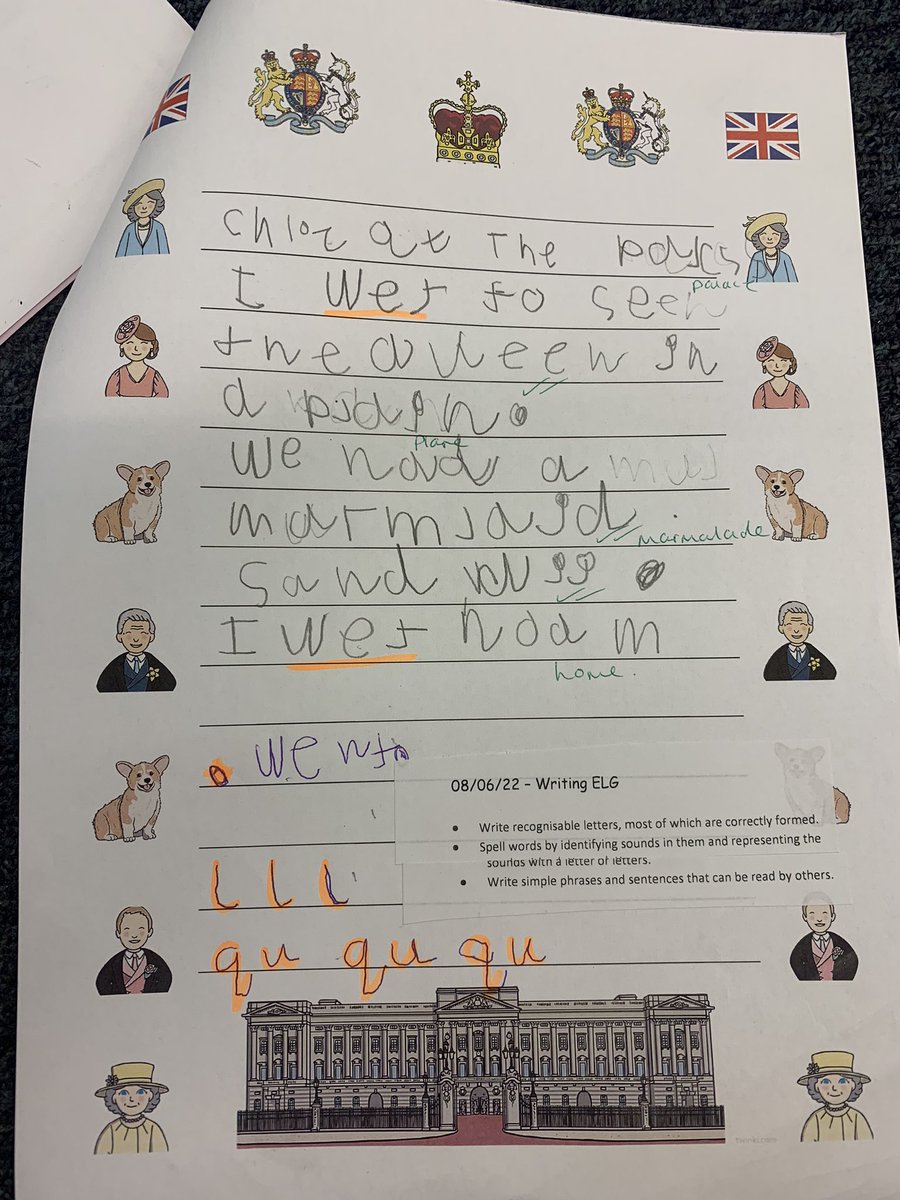 Chloe at The
palace
I wet to seen
the queen in
a
plane
We had a
marmjaid
marmalade
sand wijj
I wet hoam
home.
went
08/06/22 - Writing ELG
• Write recognisable letters, most of which are correctly formed.
• Spell words by identifying sounds in them and representing the
sounds with a letter of letters.
• Write simple phrases and sentences that can be read by others.
l l l
qu qu qu
twinkl.com